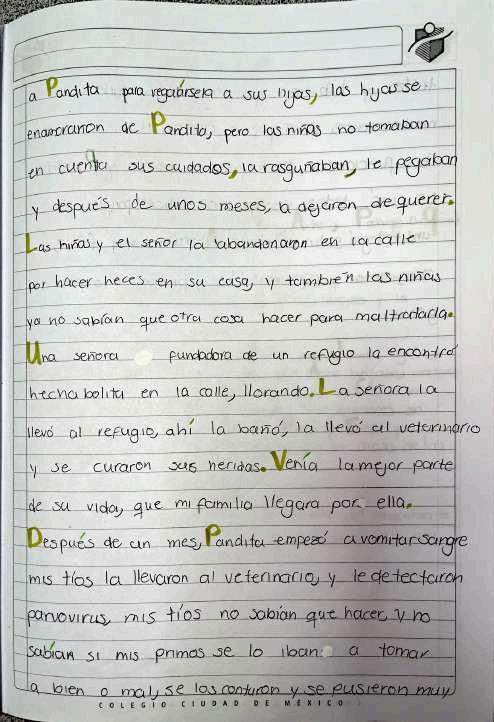 a Pandita para regalársela a sus hijas, las hijas se
enamoraron de Pandita, pero las niñas no tomaban
en cuenta sus cuidados, la rasguñaban, le pegaban
y después de unos meses, la dejaron de querer.
Las niñas y el señor la abandonaron en la calle
por hacer heces en su casa, y también las niñas
ya no sabían que otra cosa hacer para maltratarla.
Una señora fundadora de un refugio la encontró
hecha bolita en la calle, llorando. La señora la
llevó al refugio, ahí la bañó, la llevó al veterinario
y se curaron sus heridas. Venía la mejor parte
de su vida, que mi familia llegara por ella.
Después de un mes, Pandita empezó a vomitar sangre
mis tíos la llevaron al veterinario, y le detectaron
parvovirus, mis tíos no sabían que hacer, y no
sabían si mis primos se lo iban a tomar
a bien o mal, se los contaron y se pusieron muy
COLEGIO CIUDAD DE MÉXICO